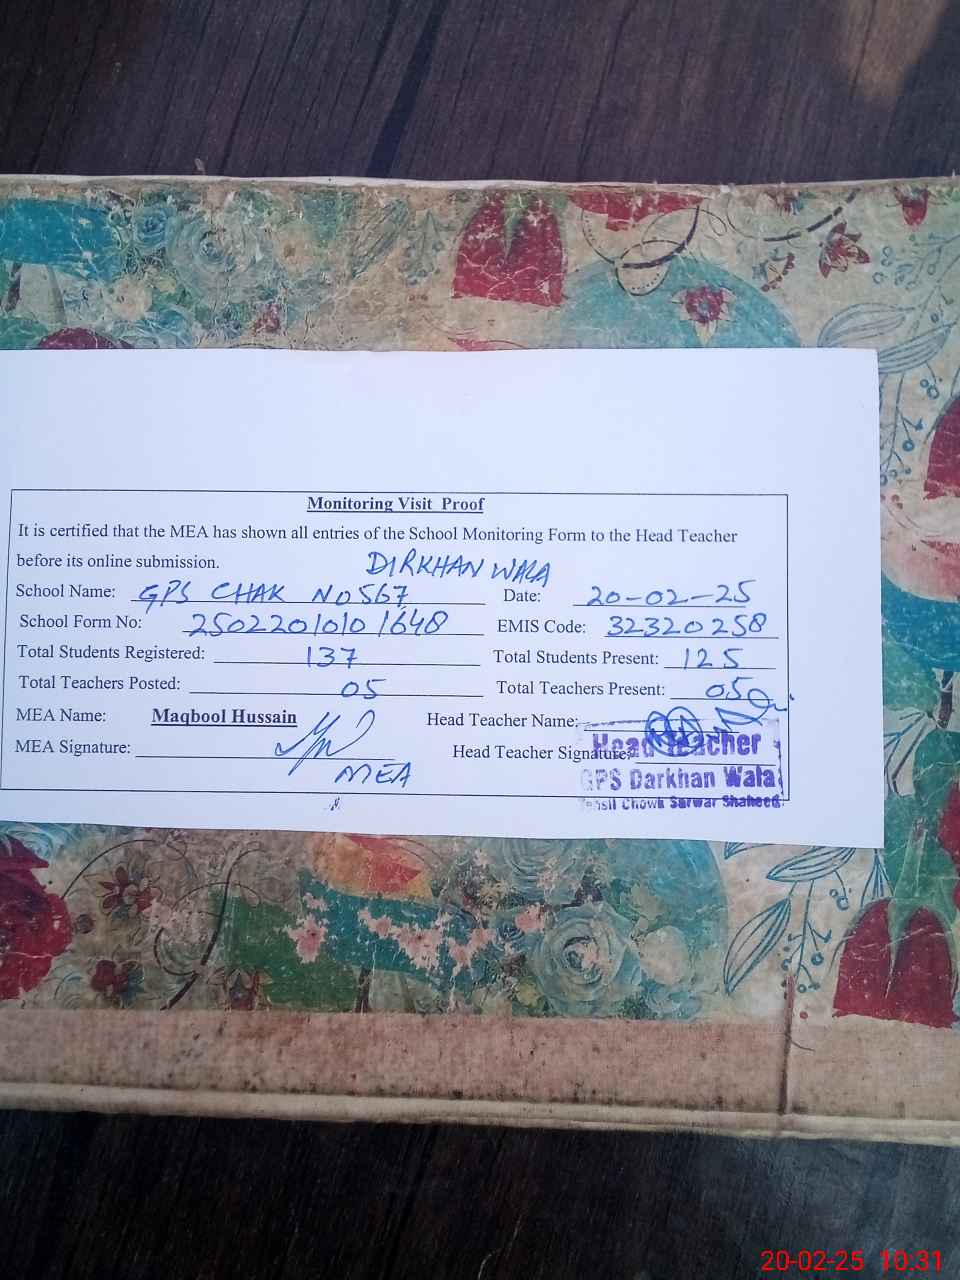 Monitoring Visit Proof
It is certified that the MEA has shown all entries of the School Monitoring Form to the Head Teacher
before its online submission.
DIRKHAN WALA
School Name: GPS CHAK NO 567 Date: 20-02-25
School Form No: 25022010101648 EMIS Code: 32320258
Total Students Registered: 137 Total Students Present: 125
Total Teachers Posted: 05 Total Teachers Present: 05
MEA Name: Maqbool Hussain Head Teacher Name:
MEA Signature: Head Teacher Signature:
MEA
Head Teacher
GPS Darkhan Wala
Tehsil Chowk Sarwar Shaheed
20-02-25 10:31